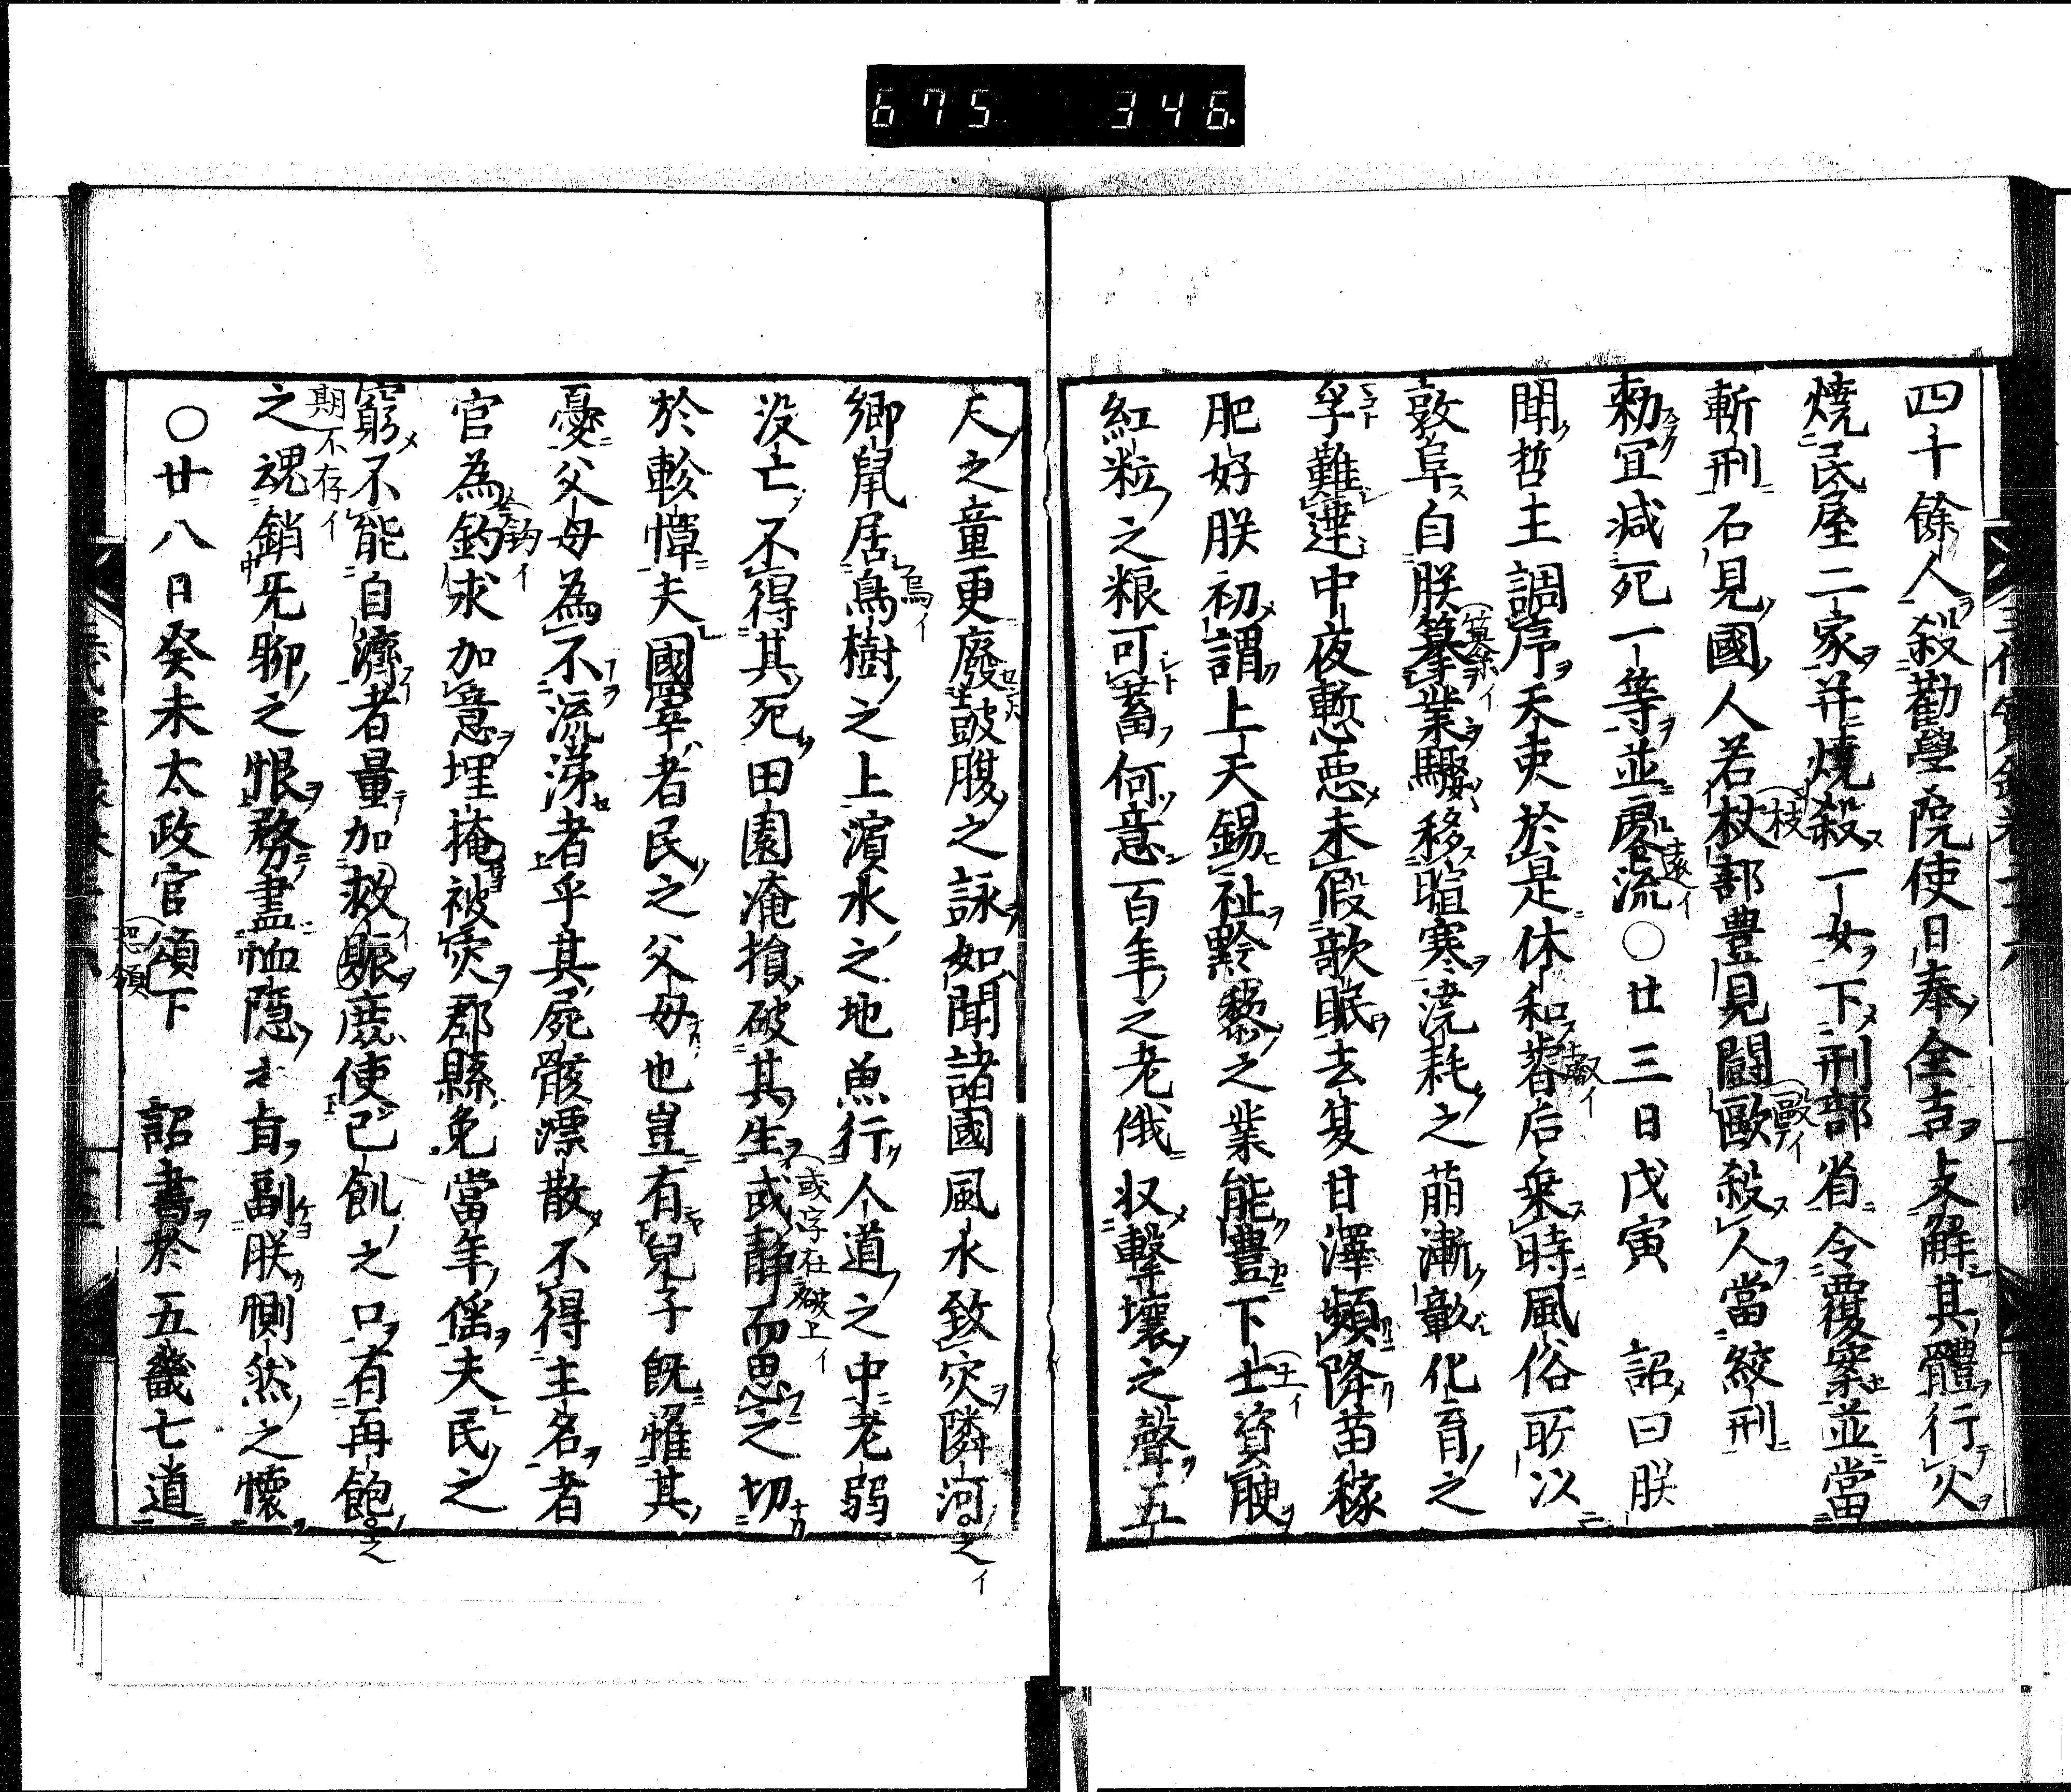 675 346
四十餘人殺勸學院使日奉全吉支解其體行火
燒民屋二家并燒殺一女下刑部省令覆案並當
斬刑石見國人若杖部豊見闘歐殺人當絞刑
勅宜減死一等並處流〇廿三日戊寅 詔曰朕
聞哲主調序天吏於是休和蓍后乗時風俗所以
敦阜自朕纂業驟移暄寒澆耗之萠漸虧化育之
孚難達中夜慙惡未假歇眠去夏甘澤頻降苗稼
肥好朕初謂上天錫祉黔黎之業能豊下士貧腴
紅粒之粮可蓄何意百年之老俄収擊壤之聲五
尺之童更廢皷腹之詠如聞諸國風水致灾隣河
鄉鼠居鳥樹之上濱水之地魚行人道之中老弱
没亡不得其死田園淹損破其生或静而思之切
於軫惸夫國宰者民之父母也豈有兒子既罹其
憂父母為不流涕者乎其屍骸漂散不得主名者
官為釣求加意埋掩被灾郡縣免當年傜夫民之
窮不能自濟者量加救賑庶使已飢之口有再飽
之魂銷旡聊之恨務盡恤隠之旨副朕惻然之懷
〇廿八日癸未太政官頌下 詔書於五畿七道